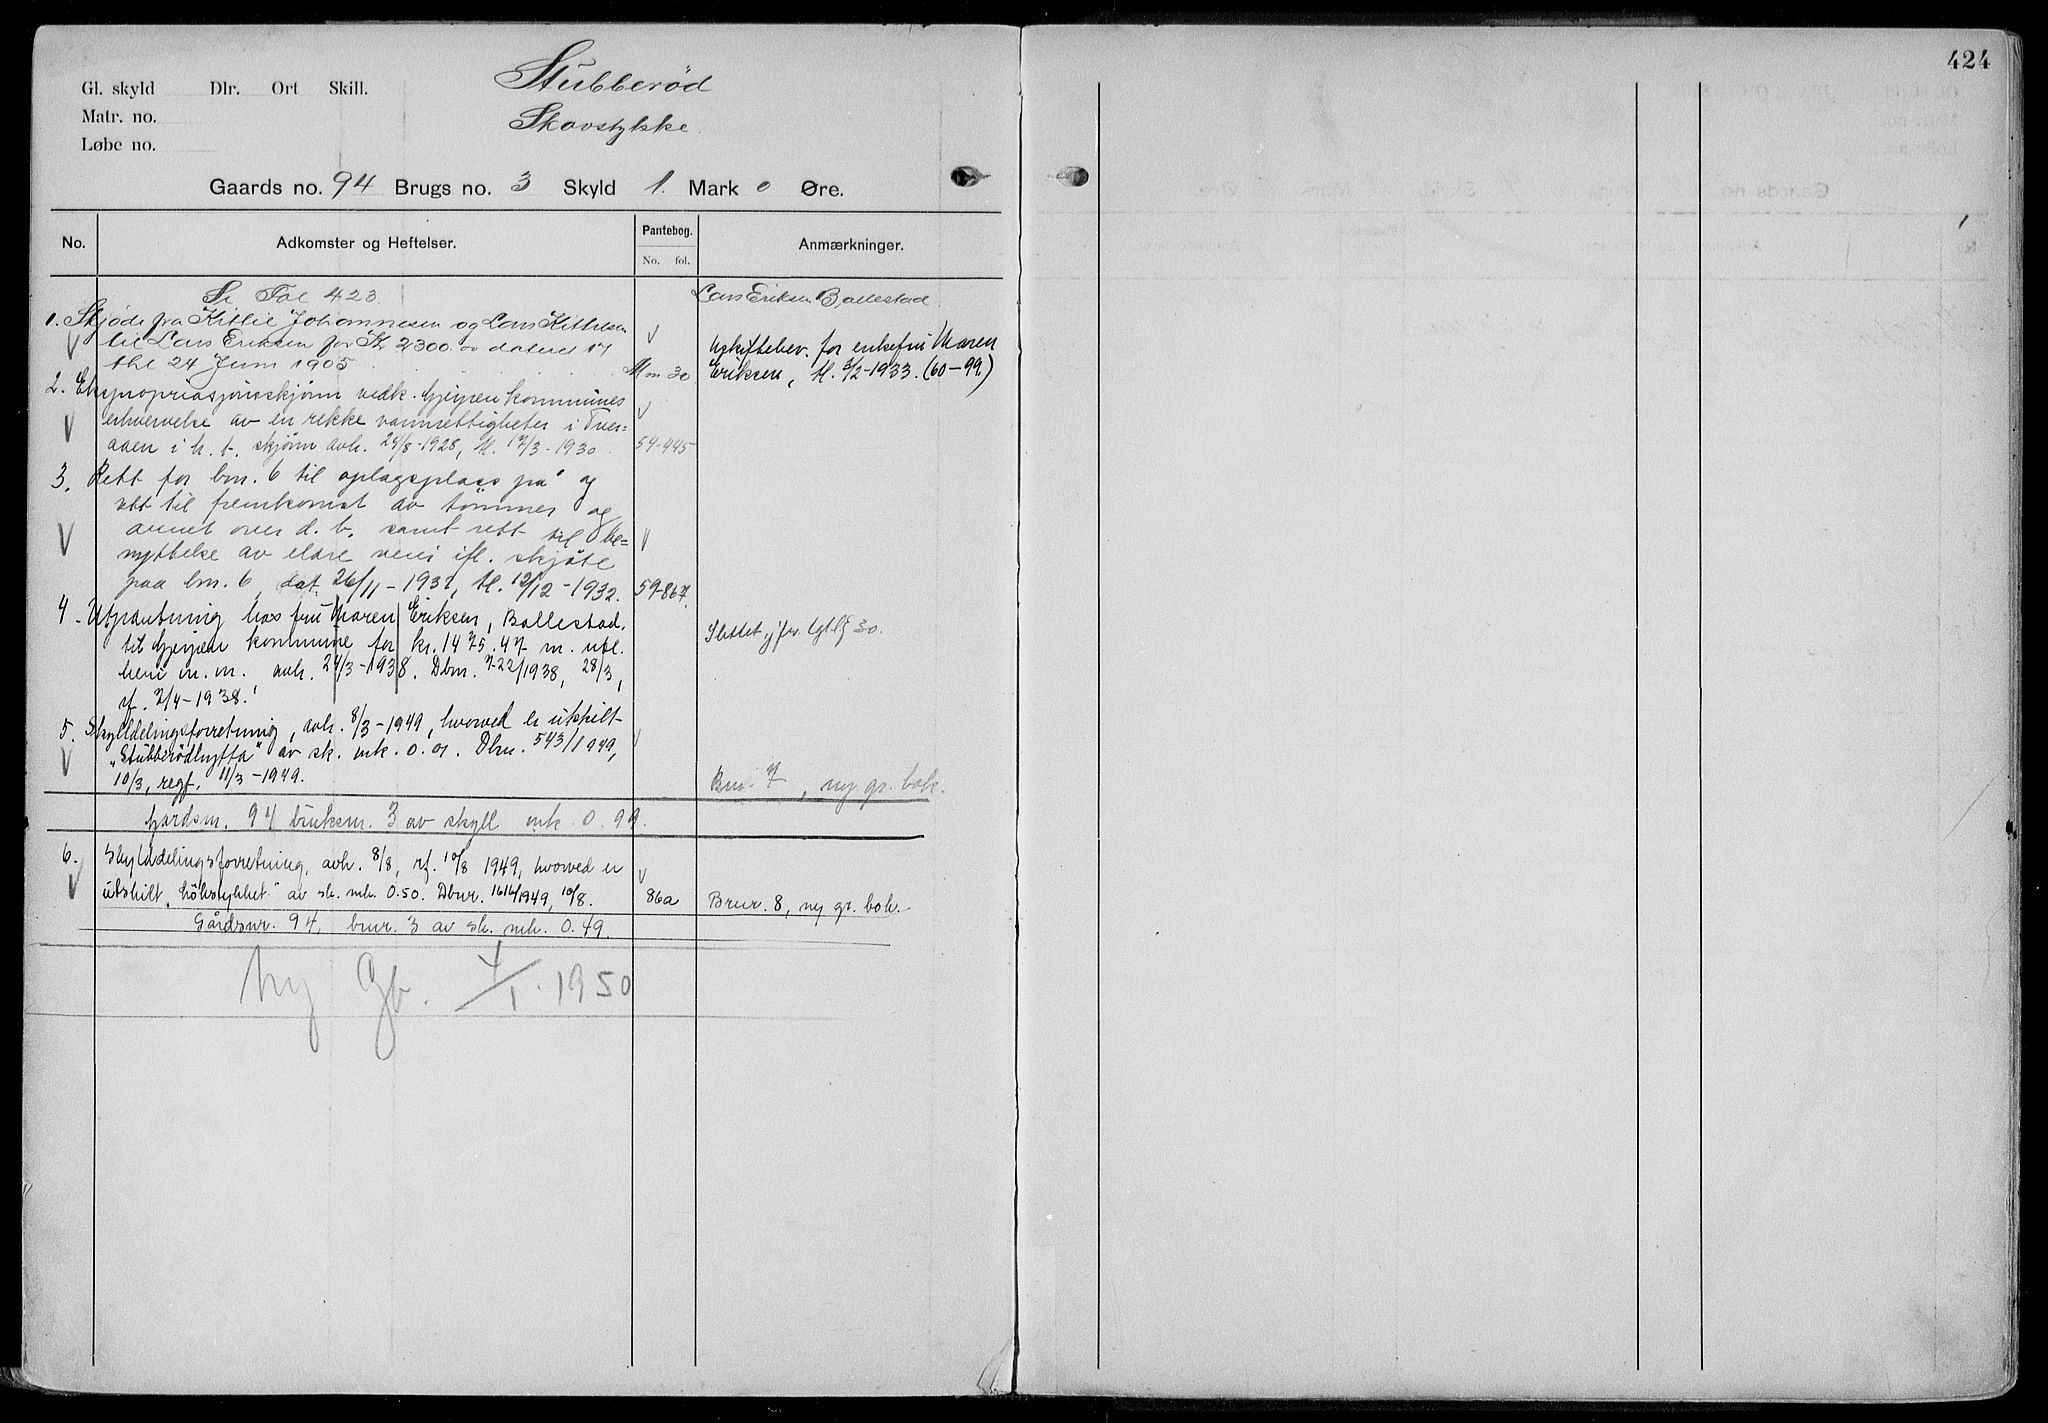 424
Stubberød
Skovstykke
Gl. skyld Dlr. Ort Skill.
Matr. no.
Løbe no.
Gaards no. 94 Brugs no. 3 Skyld 1. Mark 0 Øre.
No. Adkomster og Heftelser. Pantebog. No. fol. Anmærkninger.
Se Fol 423. Lars Eriksen Ballestad
1. Skjøde fra Kittil Johannesen og Lars Kittilsen
til Lars Eriksen for Kr 2300.00 dateret 17
thl 24 Juni 1905 M no 30
Uskiftebev. for enkefru Maren
Eriksen, tl. 3/2-1933. (60-99)
2. Ekspropriasjonsskjønn vedk. Gjerpen kommunes
erhvervelse av en rekke vannrettigheter i Tver-
aaen i h. t. skjønn avh. 24/8-1928, tl. 17/3-1930. 54-445
3. Rett for bnr. 6 til oplagsplass på og
rett til fremkomst av tømmer og
annet over d. b. samt rett til be-
nyttelse av eldre veier ifl. skjøte
paa bnr. 6, dat. 26/11-1931, tl. 12/12-1932. 59-867.
4. Utpantning hos fru Maren Eriksen, Ballestad.
til Gjerpen kommune for kr. 1475.47 m. utl.
heri m. m. avh. 24/3-1938. Dbnr. 722/1938, 28/3,
rf. 2/4-1938.
Slettet, jfr.
5. Skylddelingsforretning, avh. 8/3-1949, hvorved er utskilt
"Stubberødhytta" av sk. mk. 0.01. Dbnr. 543/1949,
10/3, regf. 11/3-1949. Bnr. 7, ny gr. bok.
Gardsnr. 94 bruksnr. 3 av skyll mk. 0.99.
6. Skylddelingsforretning, avh. 8/8, rf. 10/8 1949, hvorved er
utskilt av sk. mk. 0.50. Dbnr. 1616/1949, 10/8. 86a Brnr. 8, ny gr. bok.
Gårdsnr. 94, bnr. 3 av sk. mk. 0.49.
Ny Gb. 4/1. 1950